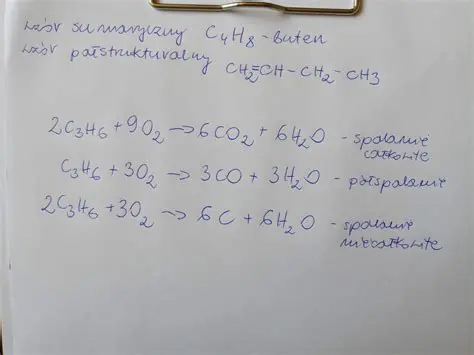 wzór sumaryczny C₄H₈ - buten
wzór półstrukturalny CH₂=CH-CH₂-CH3
2C₃H₆ + 9O₂ → 6CO₂ + 6H₂O - spalanie
całkowite
C₃H₆ + 3O₂ → 3CO + 3H₂O - półspalanie
2C₃H₆ + 3O₂ → 6C + 6H₂O - spalanie
niecałkowite